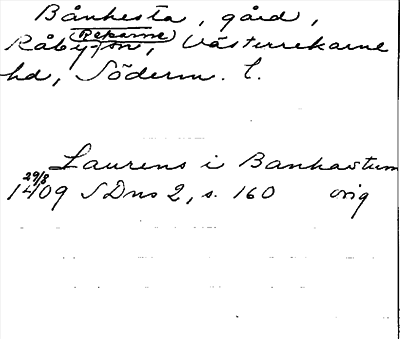 Bånhesta, gård,
Råby-Rekarne sn, Västerrekarne
hd, Söderm. l.
Laurens i Banhastum
29/8
1409 SDns 2, s. 160 orig